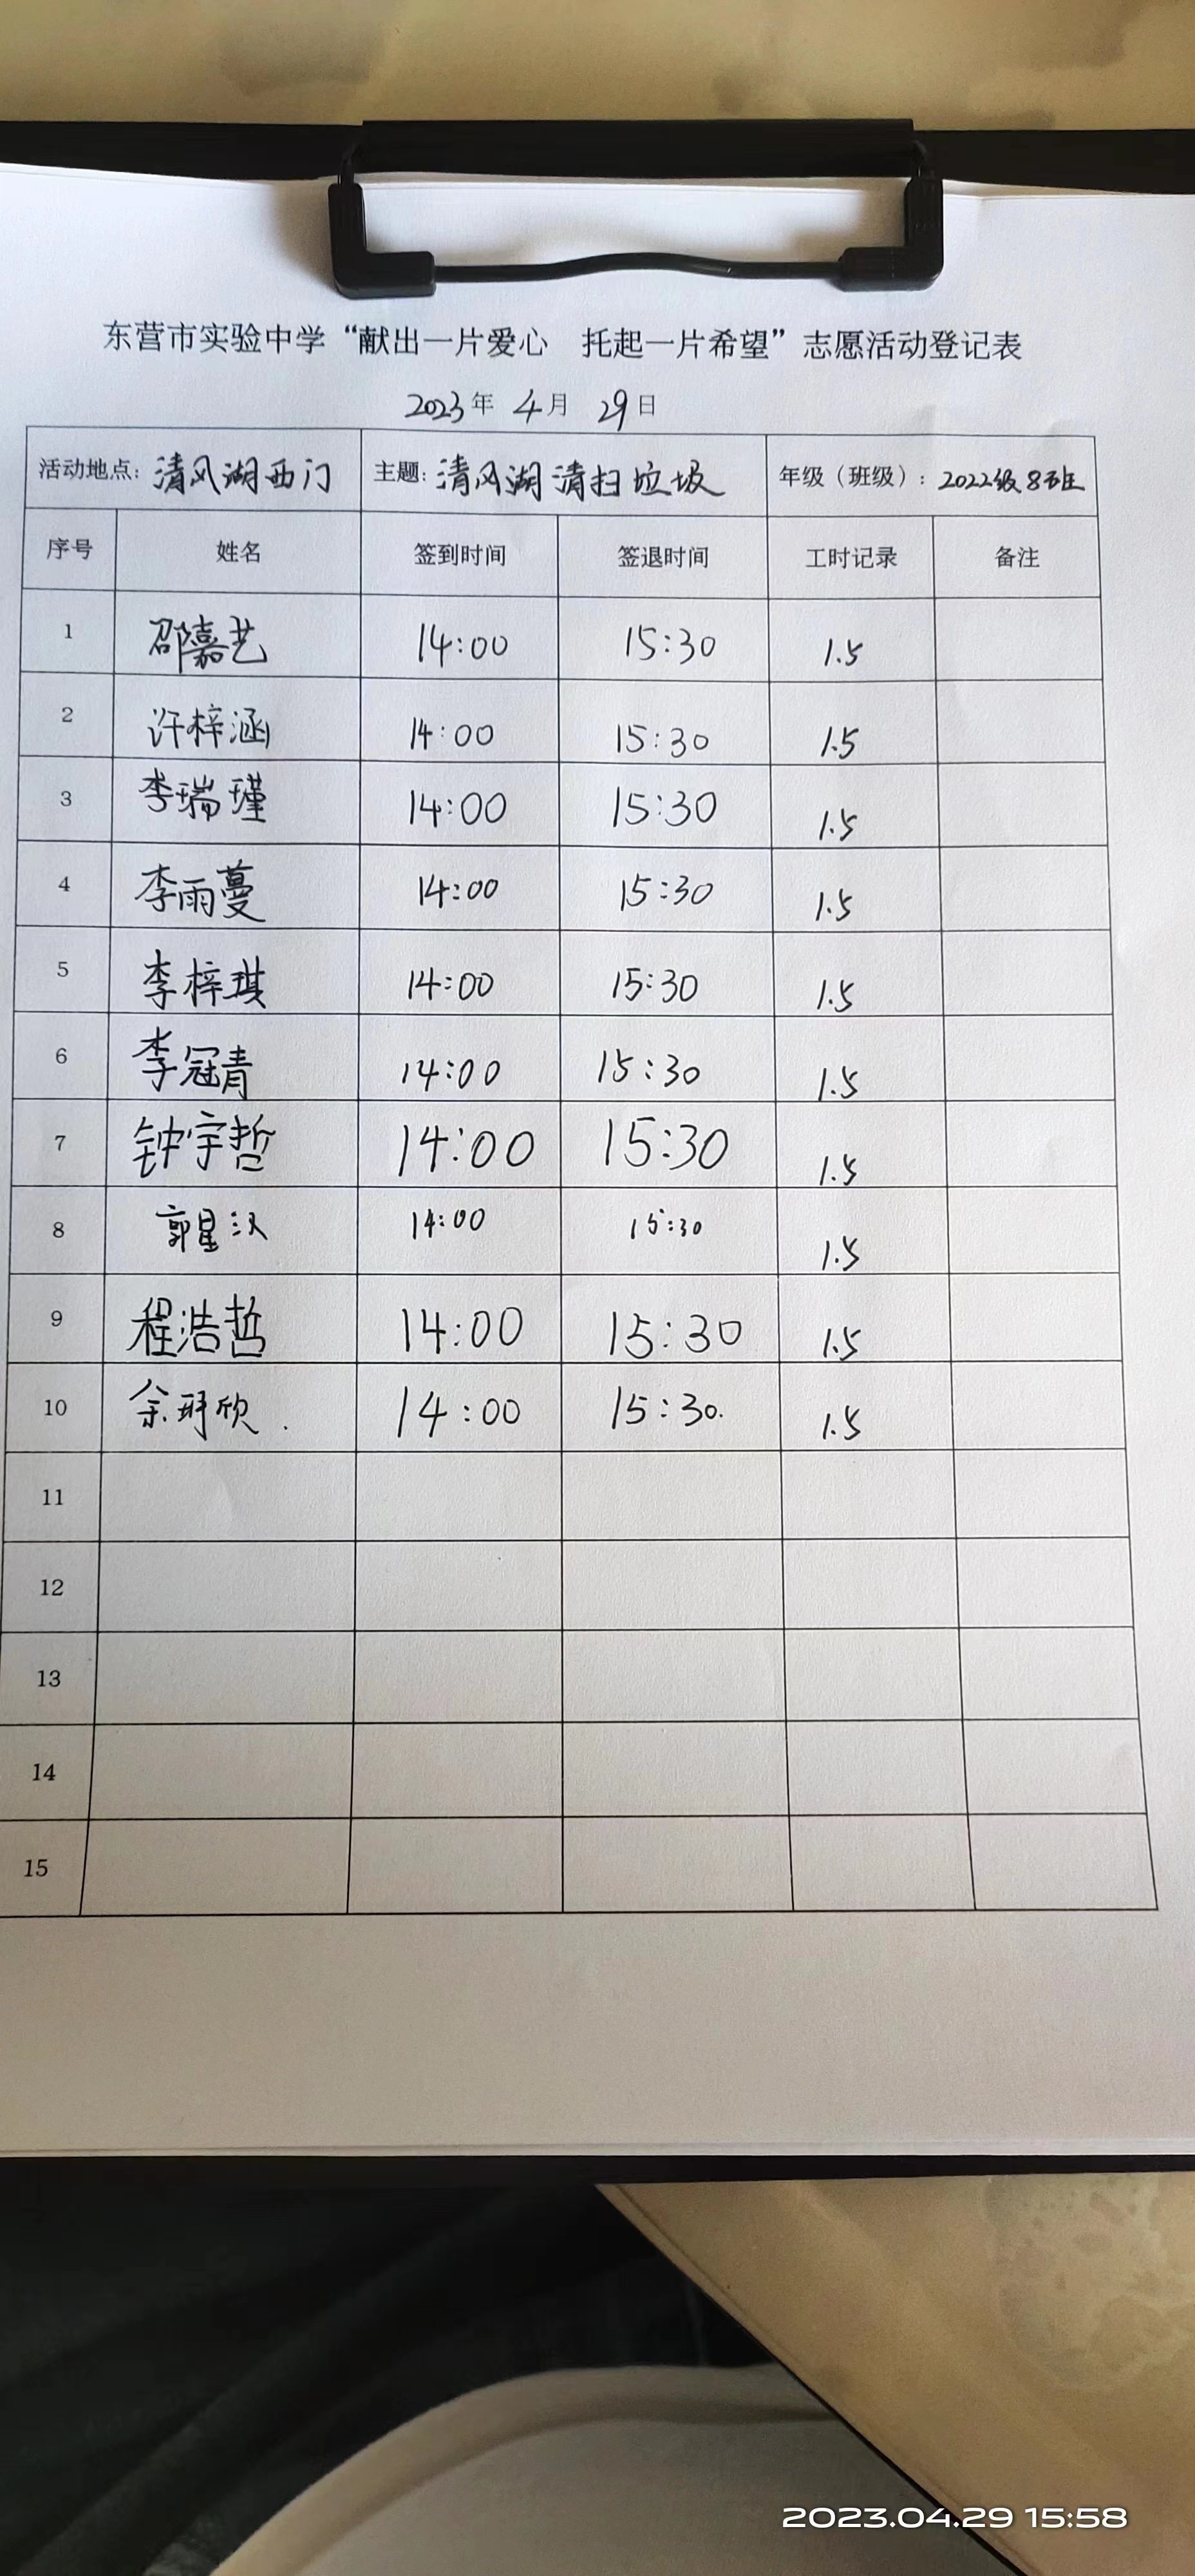 东营市实验中学“献出一片爱心 托起一片希望”志愿活动登记表
2023年 4月 29日
活动地点：清风湖西门 主题：清风湖清扫垃圾 年级（班级）：2022级8班
序号 姓名 签到时间 签退时间 工时记录 备注
1 邵嘉艺 14:00 15:30 1.5
2 许梓涵 14:00 15:30 1.5
3 李瑞瑾 14:00 15:30 1.5
4 李雨蔓 14:00 15:30 1.5
5 李梓琪 14:00 15:30 1.5
6 李冠青 14:00 15:30 1.5
7 钟宇哲 14:00 15:30 1.5
8 14:00 15:30 1.5
9 程浩哲 14:00 15:30 1.5
10 14:00 15:30. 1.5
11
12
13
14
15
2023.04.29 15:58